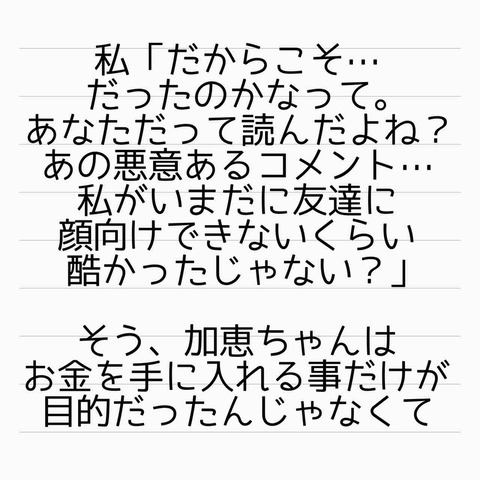 私「だからこそ…
だったのかなって。
あなただって読んだよね？
あの悪意あるコメント…
私がいまだに友達に
顔向けできないくらい
酷かったじゃない？」
そう、加恵ちゃんは
お金を手に入れる事だけが
目的だったんじゃなくて